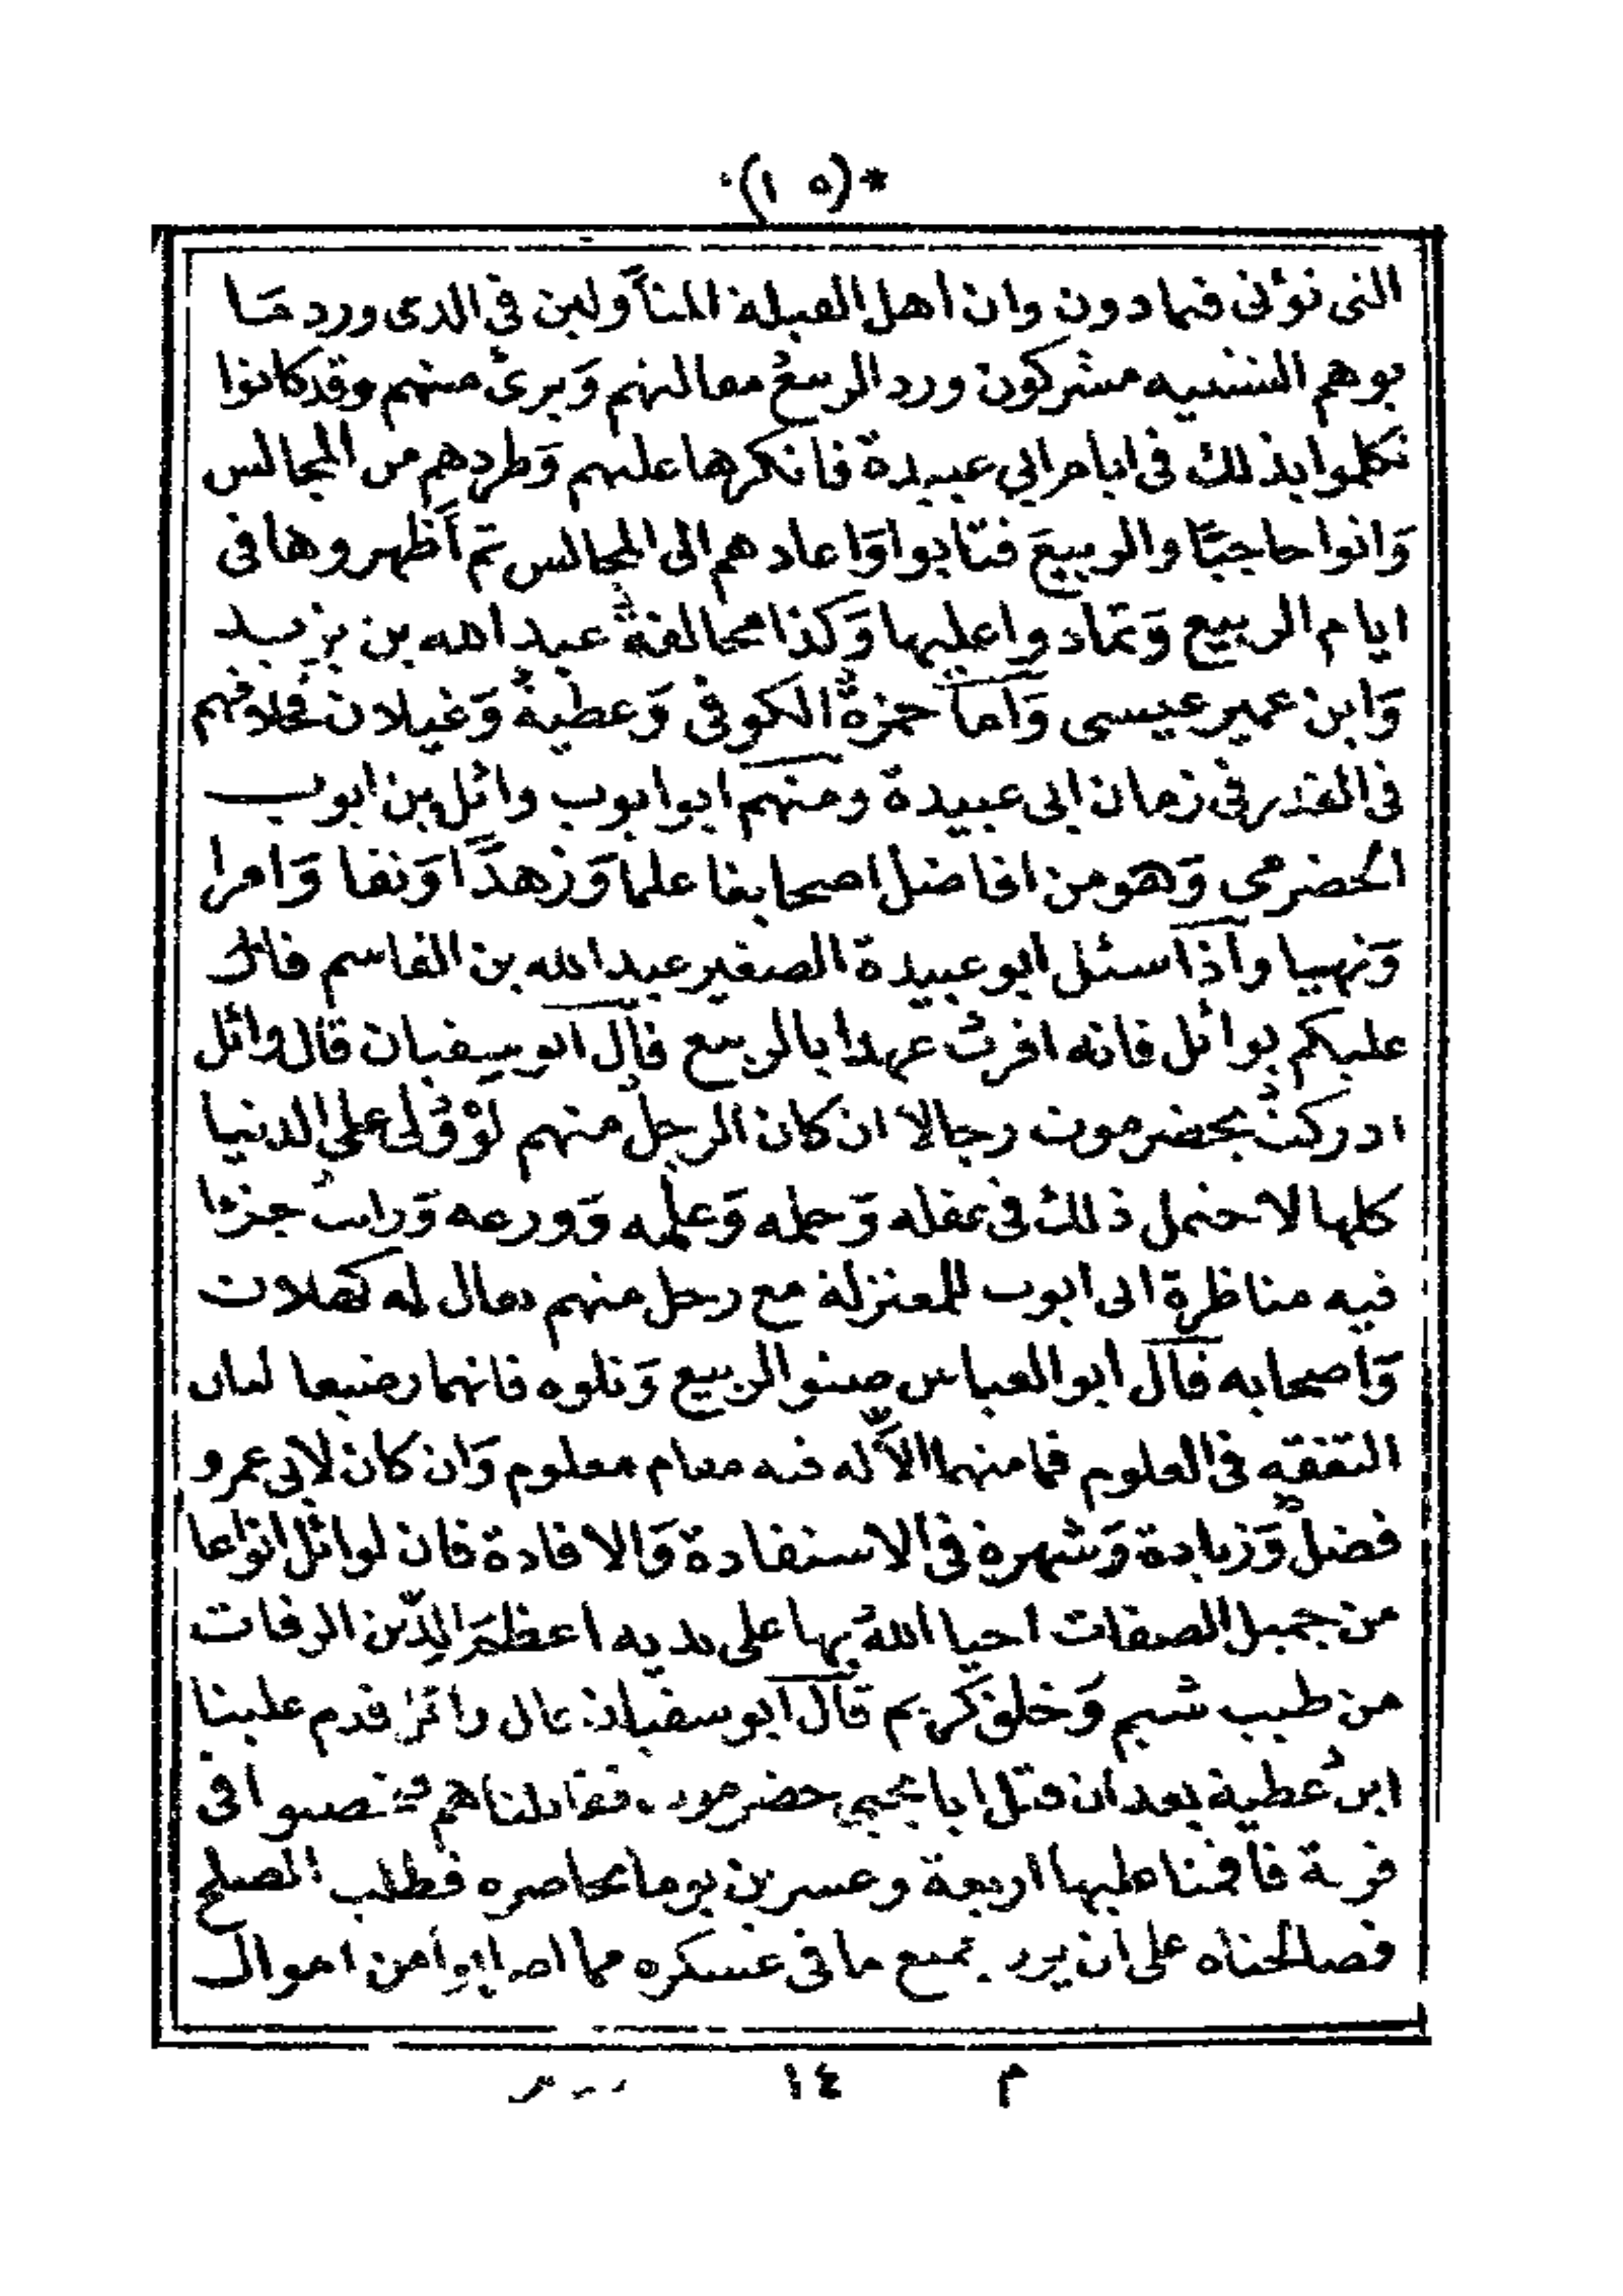 *(١٥)*
التى تؤتى فيما دون وان اهل القبلة المتأولين في الذى ورد مما
يوهم التشبيه مشركون ورد الربيع مقالتهم وَبرئ منهم وقد كانوا
تكلموا بذلك فى ايام ابي عبيدة فانكرها عليهم وَطردهم من المجالس
وَاتوا حاجبًا والربيعَ فتابوا وَاعادهم الى المجالس ثم أظهروها فى
ايام الربيع وَتمادوا عليها وَكذا مخالفة عبد الله بن يزيد
وَابن عمير عيسى وَاما حمزة الكوفى وَعطية وَغيلان فخلافهم
فى القدر فى زمان ابى عبيدة ومنهم ابو ايوب وائل بن ايوب
الحضرمى وَهو من افاضل اصحابنا علما وَزهدًا وَتقا وَامرا
وَنهيا واذا سئل ابو عبيدة الصغير عبد الله بن القاسم قال
عليكم بوائل فانه اقرب عهدا بالربيع قال ابو سفيان قال وائل
ادركت بحضرموت رجالا ان كان الرجل منهم لوْ وُلى على الدنيا
كلها لاحتمل ذلك فى عقله وَحمله وَعلمه وَورعه وَرايت جزءا
فيه مناظرة ابى ايوب للمعتزلة مع رجل منهم يقال له كهلان
وَاصحابه قال ابو العباس صنو الربيع وَتلوه فانهما رضيعا لبان
التفقه فى العلوم فما منهما الاّ له فيه مقام معلوم وَان كان لابى عمرو
فضل وَزيادة وَشهرة فى الاستفادة وَالافادة فان لوائل انواعا
من جميل الصفات احيا اللهُ بها على يديه اعظمَ الدّين الرفات
من طيب شيم وَخلق كريم قال ابو سفيان قال وائل قدم علينا
ابن عطية بعد ان قتل ابا يحيى حضرموت فقاتلناهم فتحصنوا فى
قرية فاقمنا عليها اربعة وعشرين يوما نحاصره فطلب الصلح
فصالحناه على ان يرد جميع ما فى عسكره مما اصابوا من اموال
م ١٤